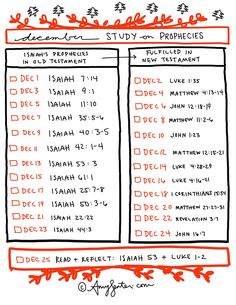 december STUDY on PROPHECIES
ISAIAH'S PROPHECIES
IN OLD TESTAMENT
DEC 1 ISAIAH 7:14
DEC 3 ISAIAH 9:1
DEC 5 ISAIAH 11:10
DEC 7 ISAIAH 35:5-6
DEC 9 ISAIAH 40:3-5
DEC 11 ISAIAH 42:1-4
DEC 13 ISAIAH 53:3
DEC 15 ISAIAH 61:1
DEC 17 ISAIAH 25:7-8
DEC 19 ISAIAH
DEC 21 ISAIAH 22:22
DEC 23 ISAIAH 44:3
FULFILLED IN
NEW TESTAMENT
DEC 2 LUKE 1:35
DEC 4 MATTHEW 4:13-14
DEC 6 JOHN 12:18-19
DEC 8 MATTHEW 11:2-6
DEC 10 JOHN 1:23
DEC 12 MATTHEW 12:15-21
DEC 14 LUKE 4:28-29
DEC 16 LUKE 4:16-21
DEC 18 1 CORINTHIANS 15:54
DEC 20 MATTHEW
DEC 22 REVELATION 3:7
DEC 24 JOHN 16:7
DEC 25 READ + REFLECT: ISAIAH 53 + LUKE 1-2